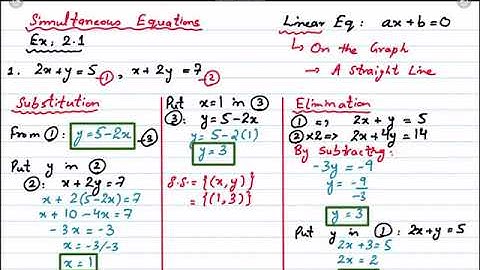 Simultaneous Equations
Ex: 2.1
Linear Eq: ax+b=0
↳ On the Graph
→ A Straight Line
1. 2x+y=5 —①, x+2y=7 —②
Substitution
From ①: y=5-2x —③
Put y in ②
②: x+2y=7
x+2(5-2x)=7
x+10-4x=7
-3x=-3
x=-3/-3
x=1
Put x=1 in ③
③: y=5-2x
y=5-2(1)
y=3
S.S={(x,y)}
={(1,3)}
Elimination
① =>, 2x+y=5
②×2=> 2x+4y=14
By subtracting:
-3y=-9
y=-9/-3
y=3
Put y in ①: 2x+y=5
2x+3=5
2x=2